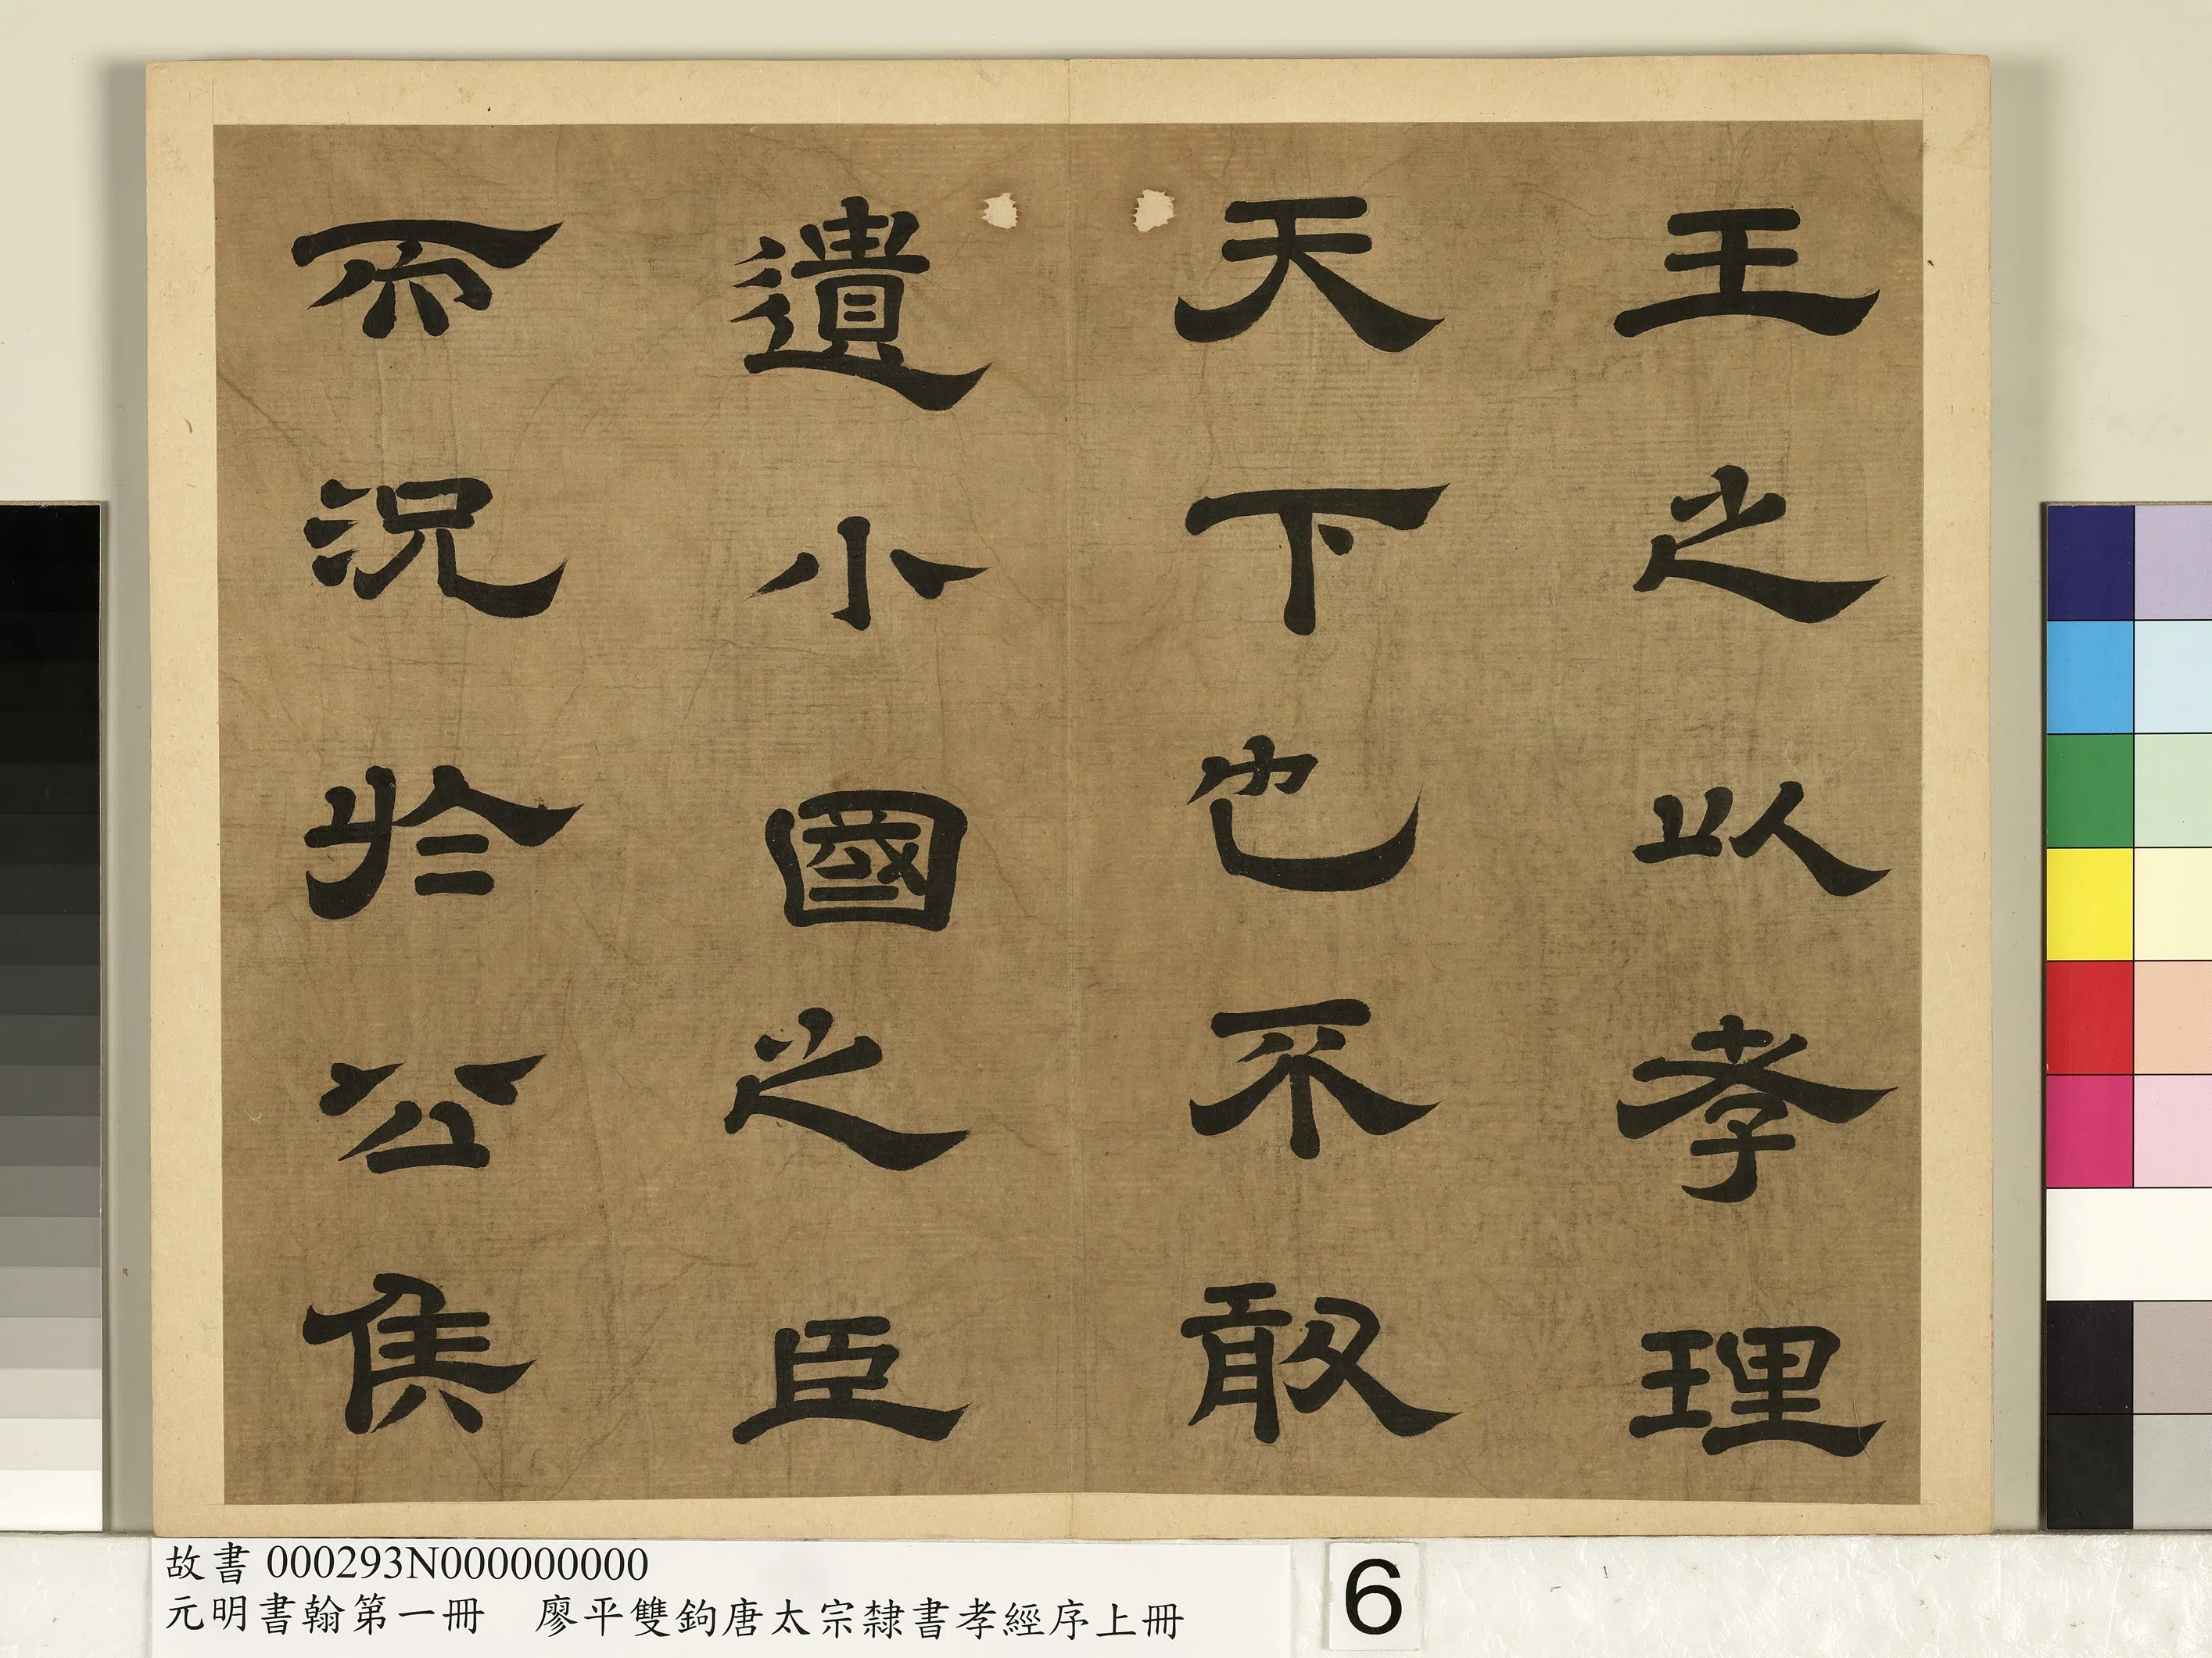 王之以孝理
天下也不敢
遺小國之臣
而況於公侯
故書 000293N000000000
元明書翰第一冊　廖平雙鉤唐太宗隸書孝經序上冊
6